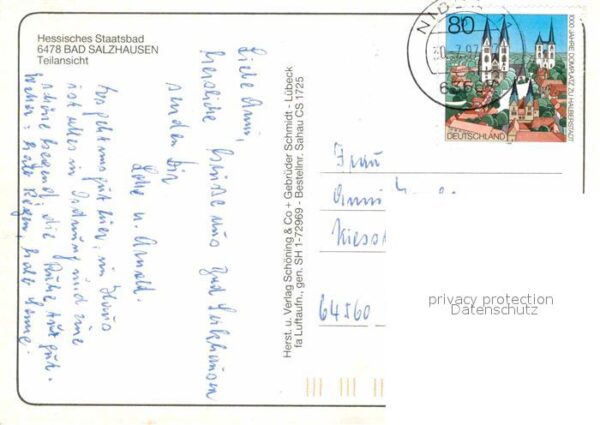 Hessisches Staatsbad
6478 BAD SALZHAUSEN
Teilansicht
Liebe Anni,
herzliche Grüße aus Bad Salzhausen
senden Dir
Lohe u. Arnold.
Es geht uns gut hier, im Haus
ist alles in Ordnung und eine
schöne Gegend, die Ruhe tut gut.
Wetter: halb Regen, halb Sonne.
Herst. u. Verlag Schöning & Co + Gebrüder Schmidt - Lübeck
fa Luftaufn., gen. SH 1-72969 - Bestellnr. Sahau CS 1725
NIDDA
80
1000 JAHRE DOMPLATZ ZU HALBERSTADT
DEUTSCHLAND
Frau
Anni
64560
privacy protection
Datenschutz